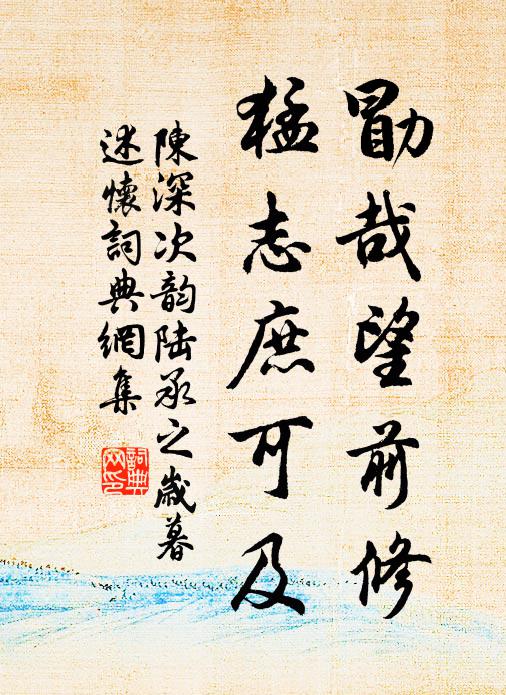 勖哉望前修
猛志庶可及
陳深次韵陆承之歲暮
述懷詞典網集
詞典
网印